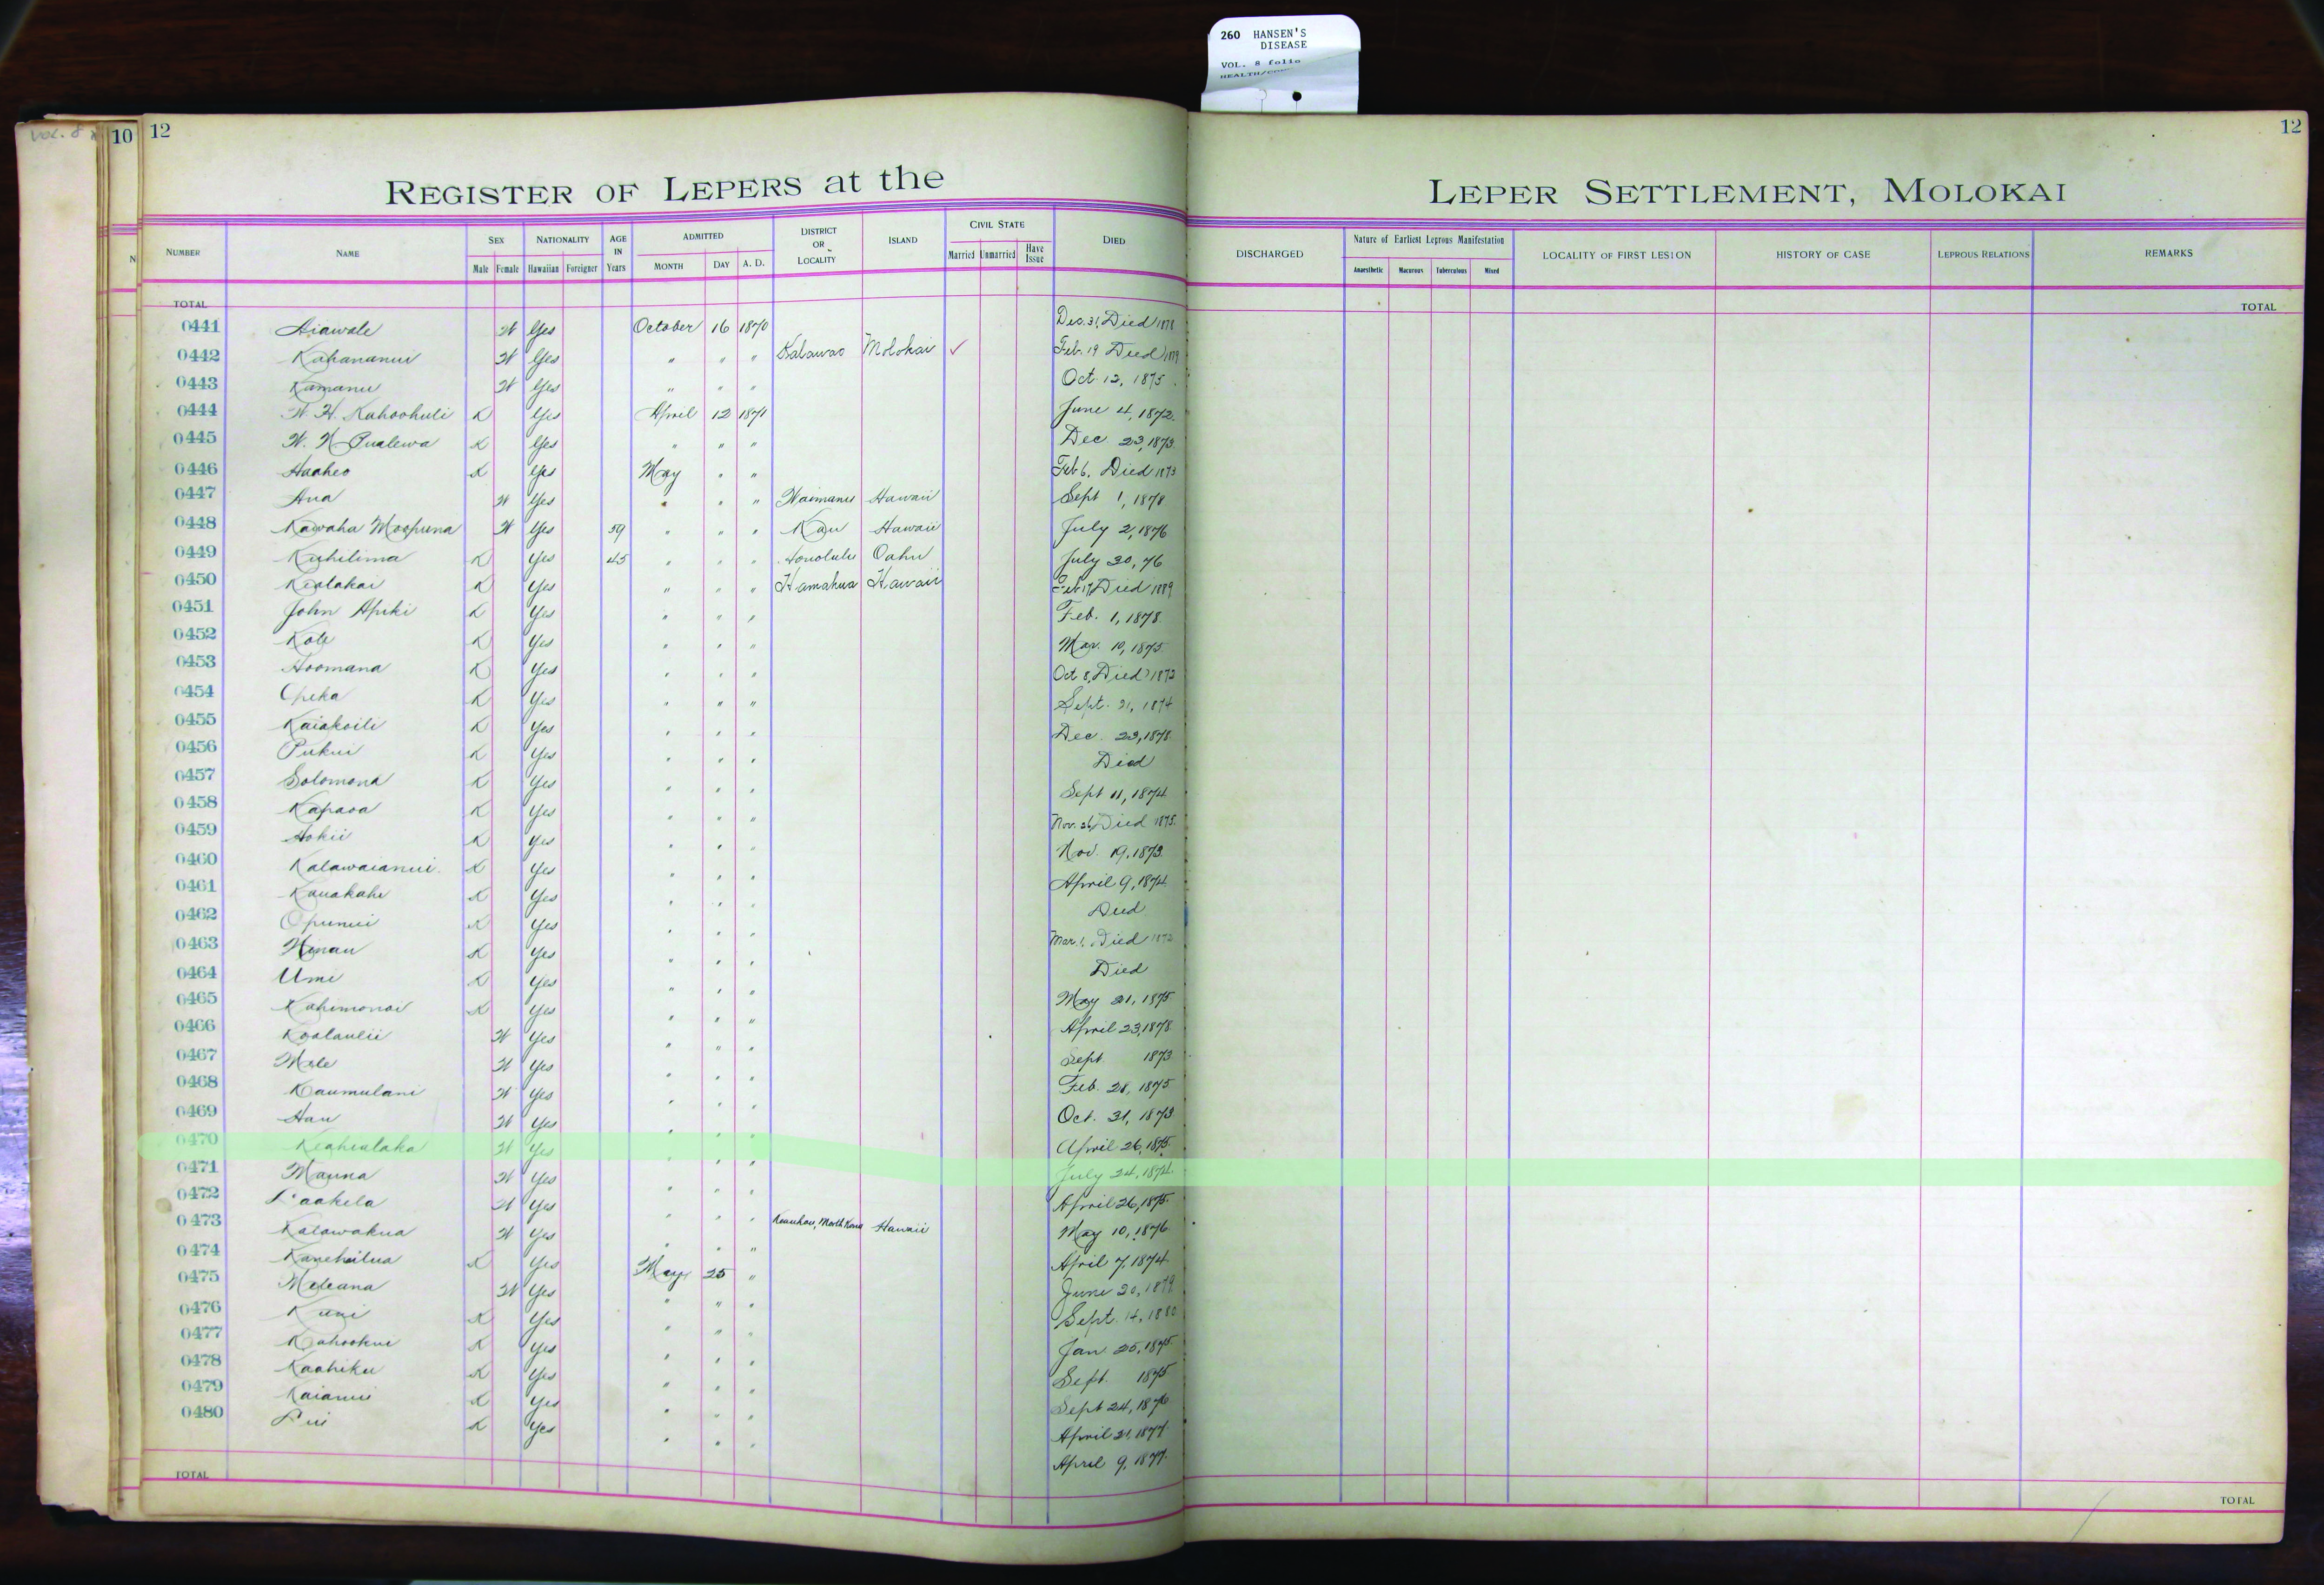 260 HANSEN'S
DISEASE
VOL. 8 folio
VOL. 8
10
12
12
REGISTER OF LEPERS at the LEPER SETTLEMENT, MOLOKAI
NUMBER NAME SEX NATIONALITY AGE IN Years ADMITTED DISTRICT OR LOCALITY ISLAND CIVIL STATE DIED DISCHARGED Nature of Earliest Leprous Manifestation LOCALITY OF FIRST LESION HISTORY OF CASE LEPROUS RELATIONS REMARKS
Male Female Hawaiian Foreigner MONTH DAY A. D. Married Unmarried Have Issue Anaesthetic Macurous Tuberculous Mixed
TOTAL TOTAL
0441 Aiawale W Yes October 16 1870 Dec. 31, Died 1878
0442 Kahananui W Yes " " " Kalawao Molokai ✓ Feb. 19 Died 1879
0443 Kamanu W Yes " " " Oct. 12, 1875
0444 W. H. Kahoohuli K Yes April 12 1871 June 4, 1872
0445 W. N. Pualewa K Yes " " " Dec. 23, 1873
0446 Haaheo K Yes May " " Feb 6, Died 1873
0447 Ana W Yes " " " Waimanu Hawaii Sept 1, 1878
0448 Kawaha Moopuna W Yes 59 " " " Kau Hawaii July 2, 1876
0449 Kuhilima K Yes 45 " " " Honolulu Oahu July 30, 76
0450 Kealakai K Yes " " " Hamakua Hawaii Feb 17, Died 1889
0451 John Apiki K Yes " " " Feb. 1, 1878
0452 Kole K Yes " " " Mar. 10, 1875
0453 Hoomana K Yes " " " Oct 8, Died 1873
0454 Opeka K Yes " " " Sept. 21, 1874
0455 Kaiakoili K Yes " " " Dec. 23, 1878
0456 Pukui K Yes " " " Died
0457 Solomona K Yes " " " Sept 11, 1874
0458 Kapaoa K Yes " " " Nov. 26, Died 1875
0459 Hokii K Yes " " " Nov. 19, 1873
0460 Kalawaianui K Yes " " " April 9, 1874
0461 Kauakahi K Yes " " " Died
0462 Opunui K Yes " " " Mar. 1, Died 1873
0463 Hinau K Yes " " " Died
0464 Umi K Yes " " " May 21, 1875
0465 Kahimonai K Yes " " " April 23, 1878
0466 Koolaulii W Yes " " " Sept 1873
0467 Mele W Yes " " " Feb. 28, 1875
0468 Kaumulani W Yes " " " Oct. 31, 1873
0469 Hau W Yes " " " April 26, 1875
0470 Keahialaka W Yes " " " July 24, 1874
0471 Mauna W Yes " " " April 26, 1875
0472 Laakela W Yes " " " Keauhou, North Kona Hawaii May 10, 1876
0473 Kalawakua W Yes " " " April 7, 1874
0474 Kanehailua K Yes May 25 " June 20, 1879
0475 Meleana W Yes " " " Sept. 14, 1880
0476 Kuni K Yes " " " Jan 25, 1875
0477 Kahookui K Yes " " " Sept. 1875
0478 Kaahiku K Yes " " " Sept 24, 1876
0479 Kaianui K Yes " " " April 21, 1877
0480 Lui K Yes " " " April 9, 1877
TOTAL TOTAL